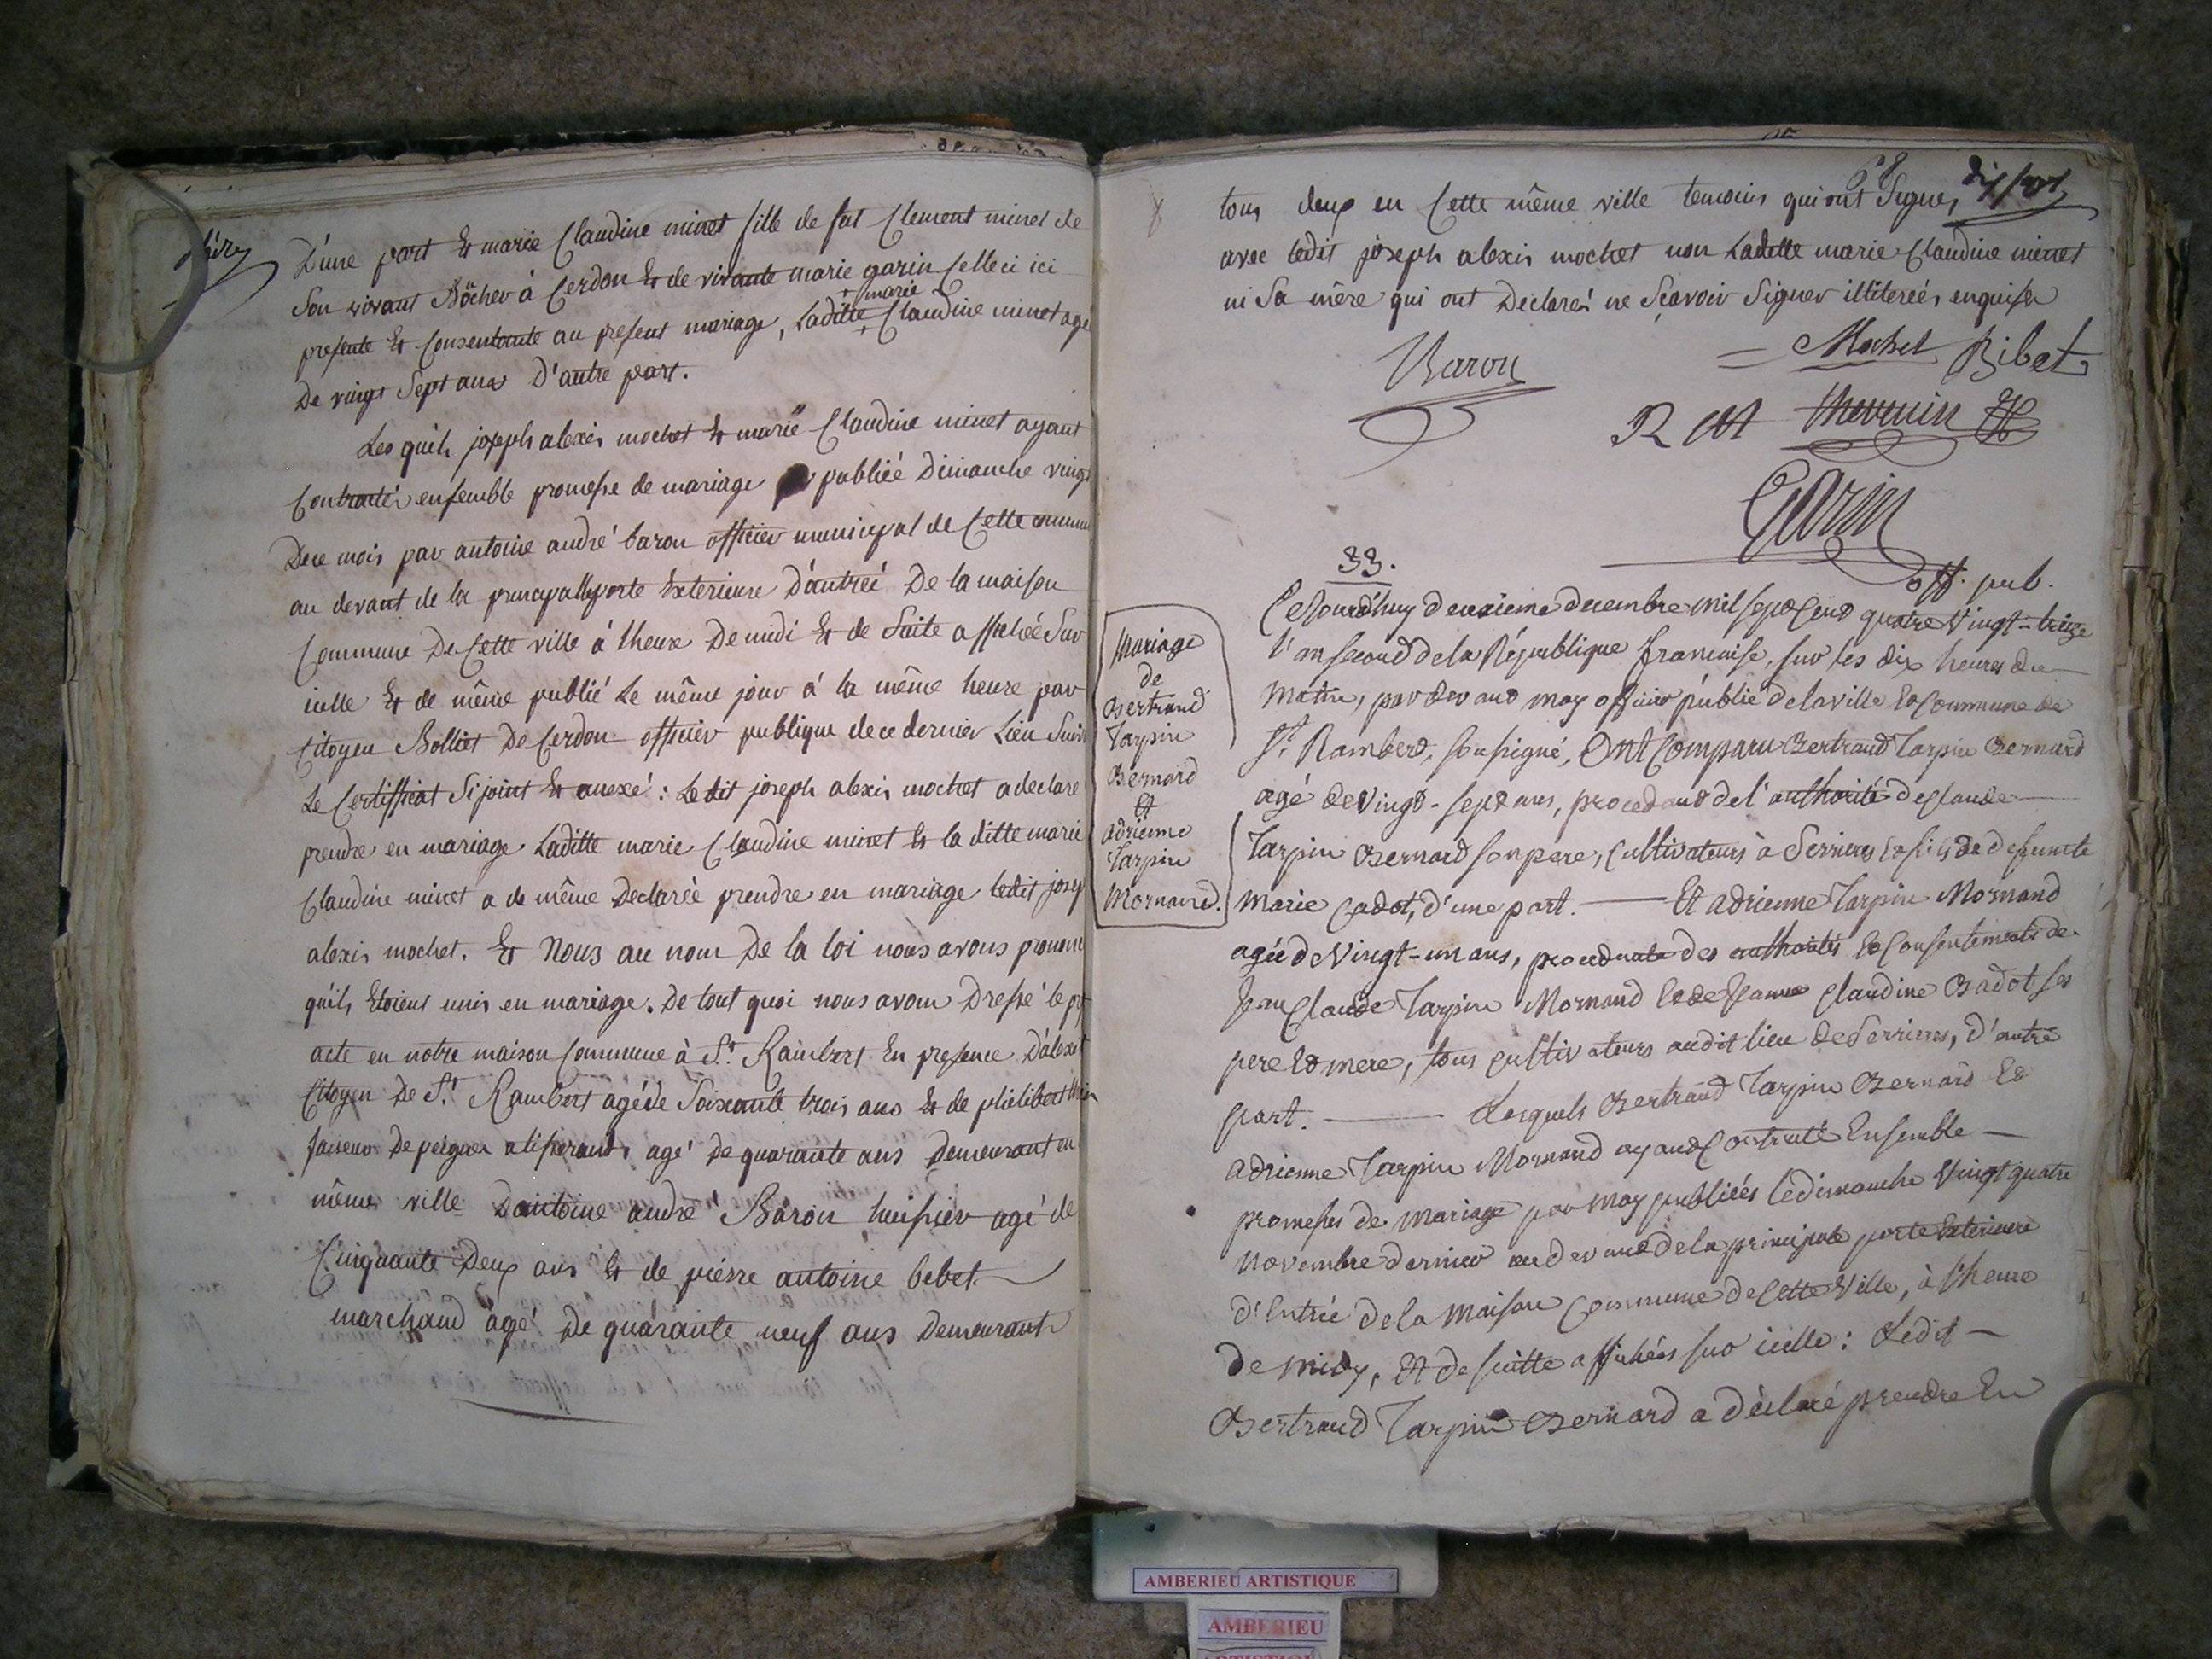 D'une part Et marie Claudine minet fille de fut Clement minet de
Son vivant Böcher à Cerdon Et de vivante marie garin Celle ci ici
marie
presente Et Consentante au present mariage, Laditte Claudine minet agé
De vingt Sept ans D'autre part.
Les quels joseph alexis mochet Et marie Claudine minet ayant
Contracté ensemble promesse de mariage publiée Dimanche vingt
De ce mois par antoine andré baron officier municipal de Cette commune
au devant de la principalle porte Exterieure D'entreé De la maison
Commune De Cette ville à l'heure De midi Et de Suite affichée Sur
icelle Et de même publié Le même jour à la même heure par
Citoyen Bolliet De Cerdon officier publique de ce dernier Lieu Suiv
Le Certifficat Si joint Et anexé : Le dit joseph alexis mochet a declare
prendre en mariage Laditte marie Claudine minet Et la ditte marie
Claudine minet a de même Declarée prendre en mariage ledit josep
alexis mochet. Et Nous au nom De la loi nous avons prononc
qu'ils Etoient unis en mariage. De tout quoi nous avons Dressé le pt
acte en notre maison Commune à St. Rambert En presence D'alexis
Citoyen De St. Rambert agé de Soixante trois ans Et de philibert
faiseur De peignes a tisserands agé De quarante ans Demeurant en
même ville D'antoine andré Baron huissier agé de
Cinquante Deux ans Et de pierre antoine bibet
marchand agé De quarante neuf ans Demeurants
68
tous deux en Cette même ville temoins qui ont Signés
avec ledit joseph alexis mochet non Laditte marie Claudine minet
ni Sa mère qui ont Declarés ne Sçavoir Signer illitereés enquises
Baron
Mochet Bibet
R M thevenin
Garin
off. pub.
33.
Mariage
de
Bertrand
Tarpin
Bernard
Et
adrienne
Tarpin
Mornand.
Cejourd'huy deuxieme decembre mil sept Cent quatre Vingt-treize
l'an second de la République francaise, sur les dix heures du
Matin, par devant moy officier public de la ville Et Commune de
St. Rambert, soussigné, Ont Comparu Bertrand Tarpin Bernard
agé de Vingt-sept ans, procedant de l'authorité de Claude
Tarpin Bernard son pere, Cultivateurs à Serrieres Et fils de defuncte
Marie Cadot, d'une part. Et adrienne Tarpin Mornand
agée de Vingt-un ans, procedante des authorités Et Consentements de
Jean Claude Tarpin Mornand Et de Jeanne Claudine Badot ses
pere Et mere, tous cultivateurs audit lieu de Serrieres, d'autre
part. Lesquels Bertrand Tarpin Bernard Et
adrienne Tarpin Mornand ayant Contracté Ensemble
promesses de Mariage par moy publieés le dimanche Vingt quatre
novembre dernier au devant de la principale porte Exterieure
d'Entrée de la Maison Commune de Cette Ville, à l'heure
de Midy, Et de suitte affichées sur icelle : Ledit
Bertrand Tarpin Bernard a déclaré prendre En
AMBERIEU ARTISTIQUE
AMBERIEU
ARTISTIQUE